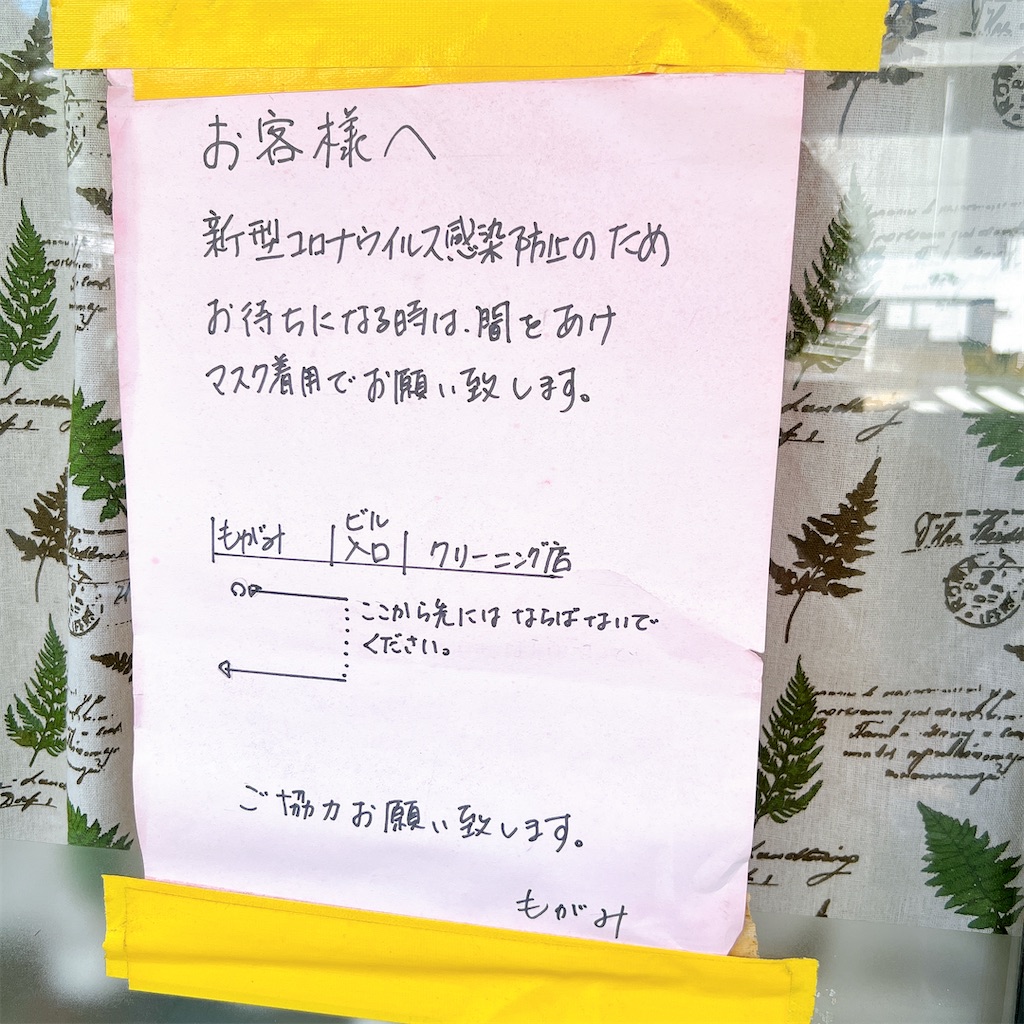 お客様へ
新型コロナウイルス感染防止のため
お待ちになる時は、間をあけ
マスク着用でお願い致します。
もがみ
ビル
入口
クリーニング店
ここから先にはならばないで
ください。
ご協力お願い致します。
もがみ